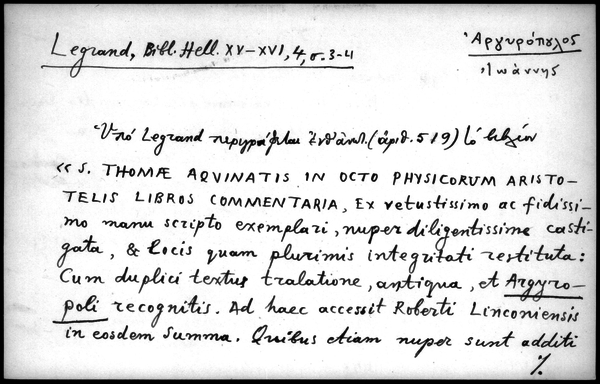 Legrand, Bibl. Hell. XV–XVI, 4, σ. 3-4
Ἀργυρόπουλος
Ἰωάννης
Ὑπό Legrand περιγράφεται ἐνθ' ἀνωτ. (ἀριθ. 519) τό βιβλίον
« S. THOMÆ AQVINATIS IN OCTO PHYSICORUM ARISTO-
TELIS LIBROS COMMENTARIA, Ex vetustissimo ac fidissi-
mo manu scripto exemplari, nuper diligentissime casti-
gata, & locis quam plurimis integritati restituta:
Cum duplici textus tralatione, antiqua, et Argyro-
poli recognitis. Ad haec accessit Roberti Linconiensis
in eosdem Summa. Quibus etiam nuper sunt additi
%